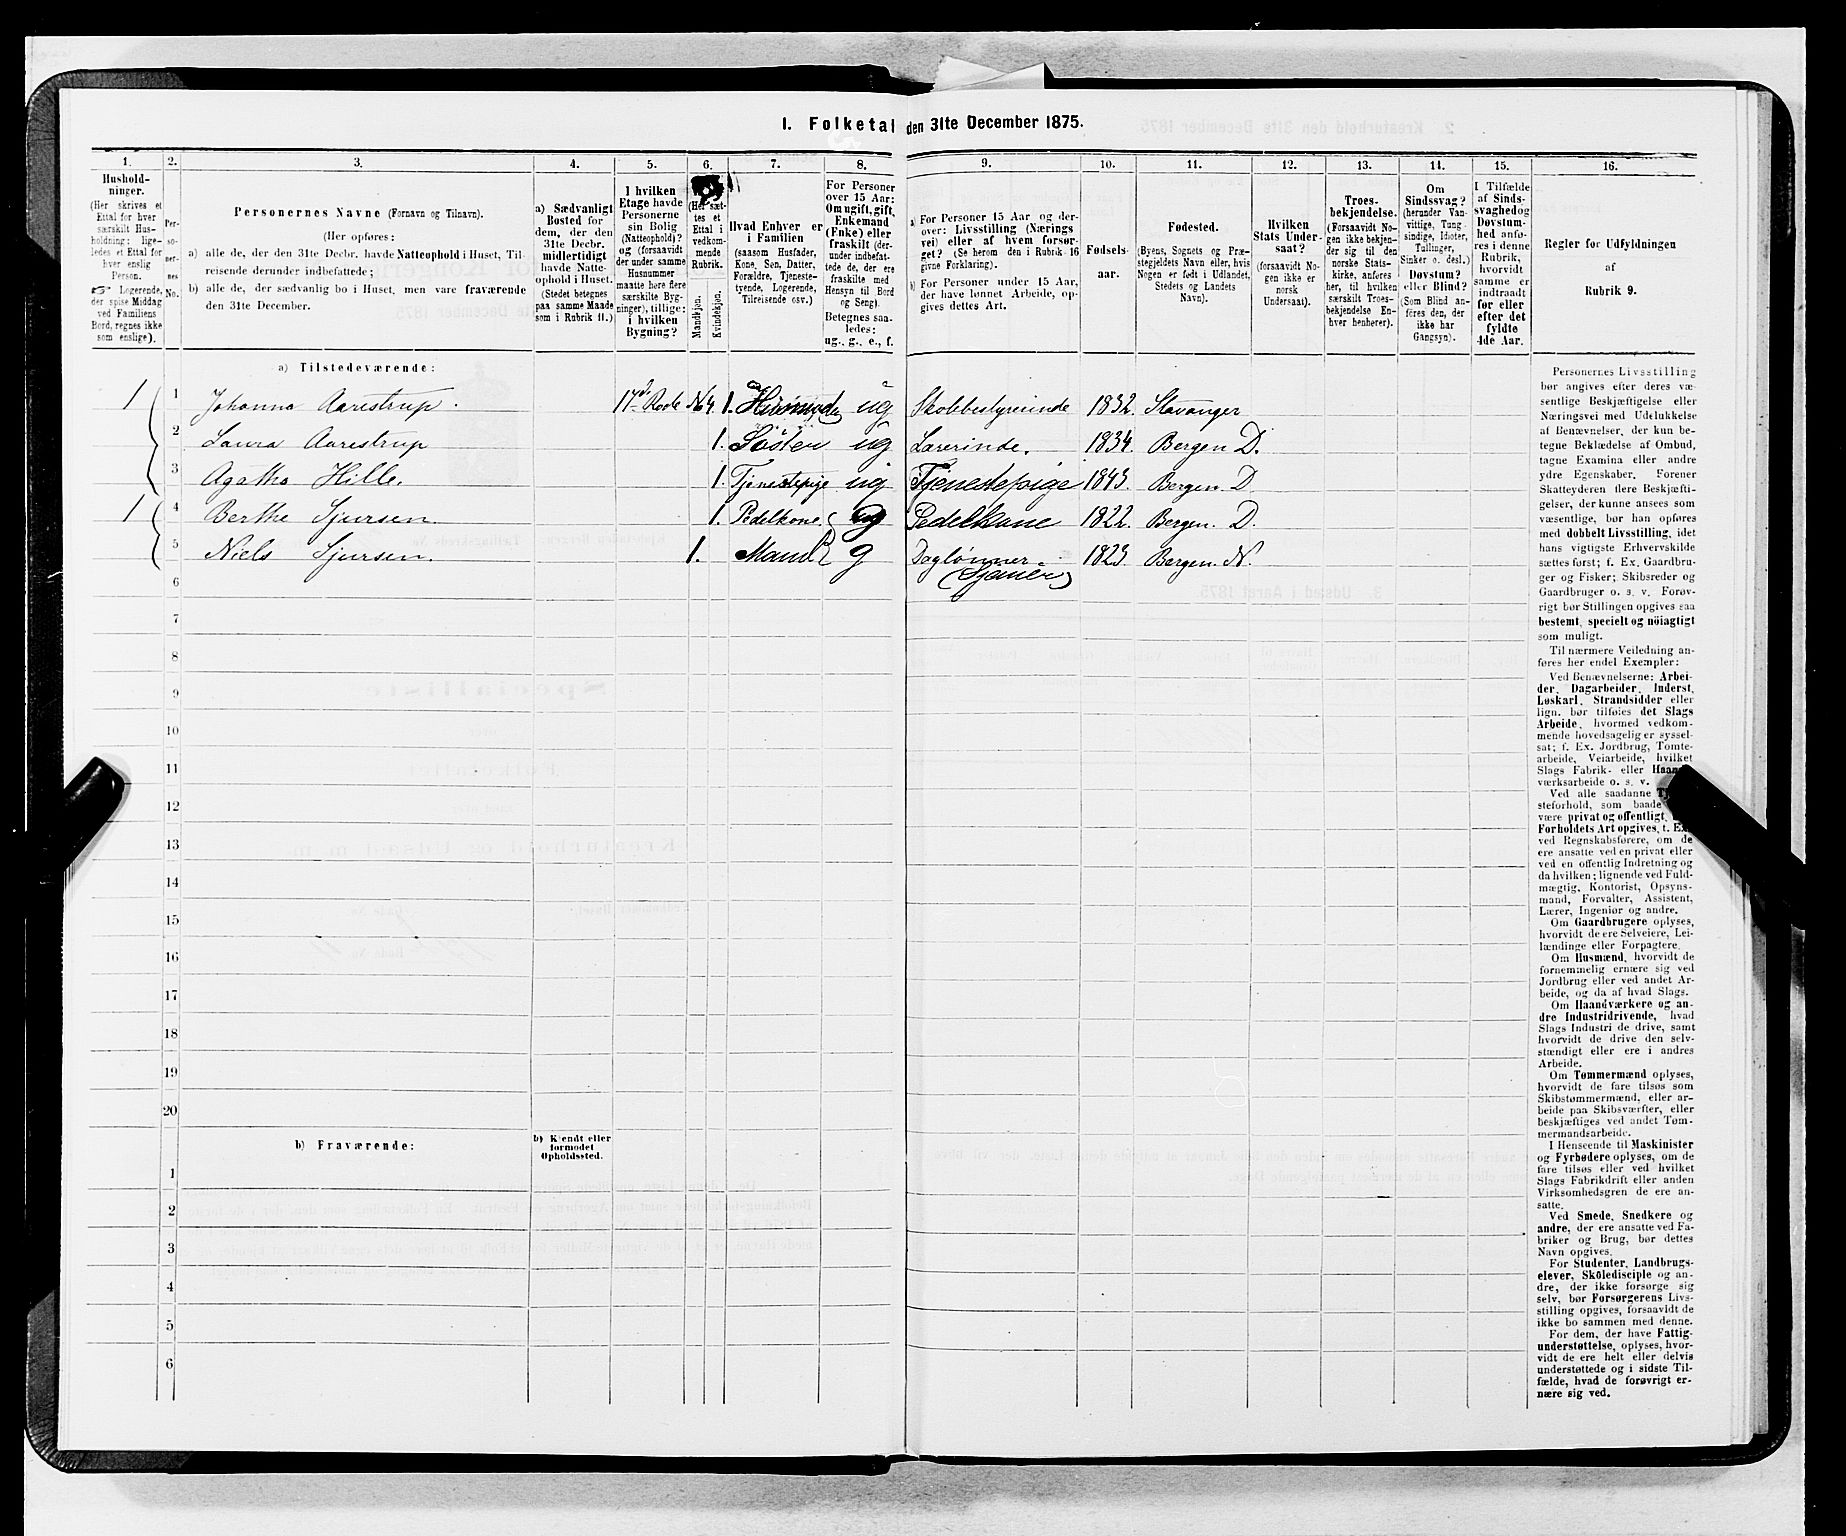 1. Folketal den 31te December 1875.
1. 2. 3. 4. 5. 6. 7. 8. 9. 10. 11. 12. 13. 14. 15. 16.
Hushold-
ninger.
(Her skrives et
Ettal for hver
særskilt Hus-
holdning; lige-
ledes et Ettal for
hver enslig
Person.
☞ Logerende,
der spise Middag
ved Familiens
Bord, regnes ikke
som enslige).
Per-
so-
ner-
nes
No.
Personernes Navne (Fornavn og Tilnavn).
(Her opføres:
a) alle de, der den 31te Decbr. havde Natteophold i Huset, Til-
reisende derunder indbefattede;
b) alle de, der sædvanlig bo i Huset, men vare fraværende
den 31te December.
a) Sædvanligt
Bosted for
dem, der den
31te Decbr.
midlertidigt
havde Natte-
ophold i Huset.
(Stedet betegnes
paa samme Maade
som i Rubrik 11.)
I hvilken
Etage havde
Personerne
sin Bolig
(Natteophold)?
og (forsaavidt
der under samme
Husnummer
maatte høre flere
særskilte Byg-
ninger), tillige:
i hvilken
Bygning?
(Her sæt-
tes et
Ettal i
vedkom-
mende
Rubrik.
Mandkjøn.
Kvindekjøn.
Hvad Enhver er
i Familien
(saasom Husfader,
Kone, Søn, Datter,
Forældre, Tjeneste-
tyende, Logerende,
Tilreisende osv.)
For Personer
over 15 Aar:
Om ugift, gift,
Enkemand
(Enke) eller
fraskilt (der-
under indbefat-
tede de, der ere
fraskilte med
Hensyn til Bord
og Seng).
Betegnes saa-
ledes:
ug., g., e., f.
a) For Personer 15 Aar og der-
over: Livsstilling (Nærings
vei) eller af hvem forsør-
get? (Se herom den i Rubrik 16
givne Forklaring).
b) For Personer under 15 Aar,
der have lønnet Arbeide, op-
gives dettes Art.
Fødsels-
aar.
Fødested.
(Byens, Sognets og Præ-
stegjeldets Navn eller, hvis
Nogen er født i Udlandet,
Stedets og Landets
Navn).
Hvilken
Stats Under-
saat?
(forsaavidt No-
gen ikke er
norsk
Undersaat).
Troes-
bekjendelse.
(Forsaavidt No-
gen ikke bekjen-
der sig til den
norske Stats-
kirke, anføres
her, til hvilken
særskilt Troes-
bekjendelse En-
hver henhører).
Om
Sindssvag?
(herunder Van-
vittige, Tung-
sindige, Idioter,
Tullinger,
Sinker o. desl.)
Døvstum?
eller Blind?
(Som Blind an-
føres den, der
ikke har
Gangsyn).
I Tilfælde
af Sinds-
svaghed og
Døvstum-
hed anfø-
res i denne
Rubrik,
hvorvidt
samme er
indtraadt
før eller
efter det
fyldte
4de Aar.
Regler for Udfyldningen
af
Rubrik 9.
a) Tilstedeværende:
1 1 Johanna Aarestrup. 17de Rode No 4. 1. ug Skolebestyrerinde 1832. Stavanger
2 Laura Aarestrup 1. Søster ug Lærerinde. 1834. Bergen D.
3 Agatha Hille. 1. Tjenestepige ug Tjenestepige 1843. Bergen. D
1 4 Berthe Sjursen. 1. Pedelkone g Pedelkone 1822. Bergen. D.
5 Niels Sjursen. 1. Mand g Daglønner 1823. Bergen. N.
6
7
8
9
10
11
12
13
14
15
16
17
18
19
20
b) Fraværende:
b) Kjendt eller
formodet
Opholdssted.
1
2
3
4
5
6
Personernes Livsstilling
bør angives efter deres væ-
sentlige Beskjæftigelse eller
Næringsvei med Udelukkelse
af Benævnelser, der kun be-
tegne Beklædelse af Ombud,
tagne Examina eller andre
ydre Egenskaber. Forener
Skatteyderen flere Beskjæfti-
gelser, der kunne ansees som
væsentlige, bør han opføres
med dobbelt Livsstilling, idet
hans vigtigste Erhvervskilde
sættes først; f. Ex. Gaardbru-
ger og Fisker; Skibsreder og
Gaardbruger o. s. v. Forøv-
rigt bør Stillingen opgives saa
bestemt, specielt og nöiagtigt
som muligt.
Til nærmere Veiledning an-
føres her endel Exempler:
Ved Benævnelserne: Arbei-
der, Dagarbeider, Inderst,
Løskarl, Strandsidder eller
lign. bør tilføies det Slags
Arbeide, hvormed vedkom-
mende hovedsagelig er syssel-
sat; f. Ex. Jordbrug, Tomte-
arbeide, Veiarbeide, hvilket
Slags Fabrik- eller
værksarbeide o. s. v.
Ved alle saadanne
steforhold, som baade
være privat og offentligt,
Forholdets Art opgives, t. Ex.
ved Regnskabsførere, om de
ere ansatte ved en privat eller
ved en offentlig Indretning og
da hvilken; lignende ved Fuld-
mægtig, Kontorist, Opsyns-
mand, Forvalter, Assistent,
Lærer, Ingeniør og andre.
Om Gaardbrugere oplyses,
hvorvidt de ere Selveiere, Lei-
lændinge eller Forpagtere.
Om Husmænd, hvorvidt de
fornemmelig ernære sig ved
Jordbrug eller ved andet Ar-
beide, og da af hvad Slags.
Om Haandværkere og an-
dre Industridrivende, hvad
Slags Industri de drive, samt
hvorvidt de drive den selv-
stændigt eller ere i andres
Arbeide.
Om Tømmermænd oplyses,
hvorvidt de fare tilsøs som
Skibstømmermænd, eller ar-
beide paa Skibsværfter, eller
beskjæftiges ved andet Tøm-
mermandsarbeide.
I Henseende til Maskinister
og Fyrbødere oplyses, om de
fare tilsøs eller ved hvilket
Slags Fabrikdrift eller anden
Virksomhedsgren de ere an-
satte.
Ved Smede, Snedkere og
andre, der ere ansatte ved Fa-
briker og Brug, bør dettes
Navn opgives.
For Studenter, Landbrugs-
elever, Skoledisciple og an-
dre, der ikke forsørge sig
selv, bør Forsørgerens Livs-
stilling opgives, forsaavidt de
ikke bo sammen med denne.
For dem, der have Fattig-
understøttelse, oplyses, hvor-
vidt de ere helt eller delvis
understøttede og i sidste Til-
fælde, hvad de forøvrigt er-
nære sig ved.